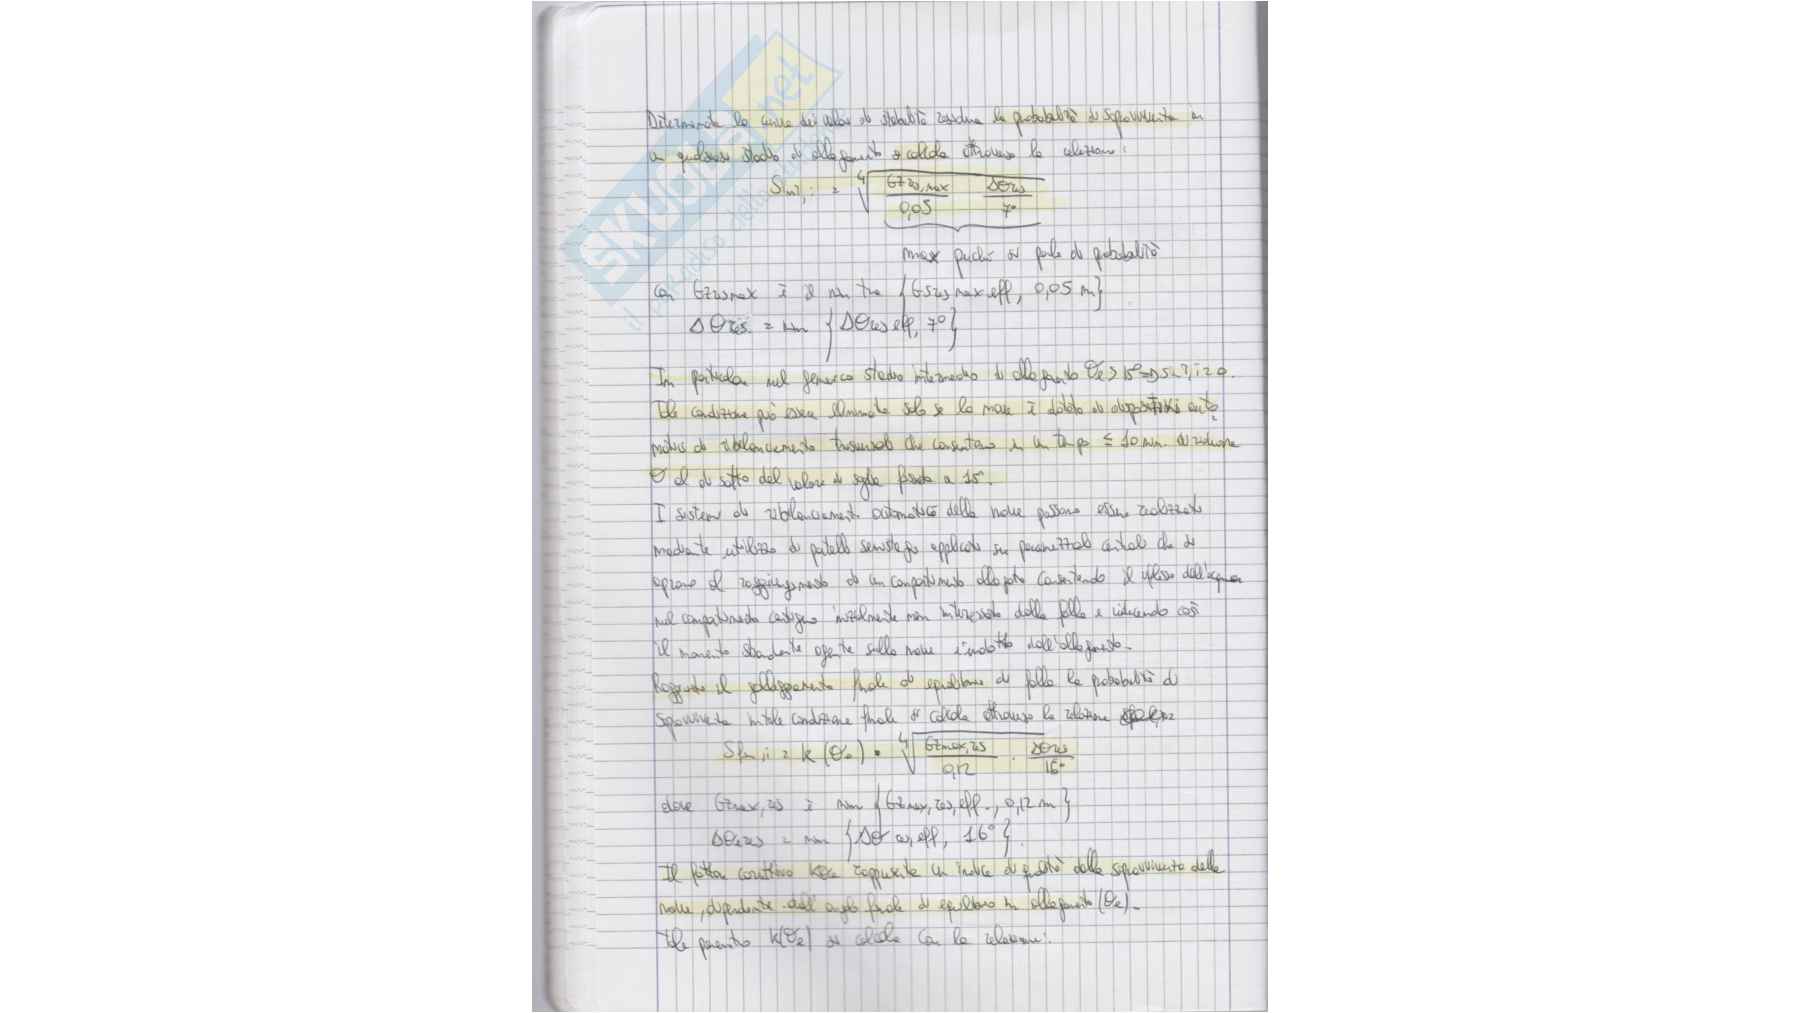 Determinata la curva dei valori di stabilità residua la probabilità di sopravvivenza in
un qualsiasi stadio di allagamento si calcola attraverso la relazione:
Sint,i = ⁴√ GZres,max / 0,05 · Δθres / 7°
max perché si parla di probabilità
Con GZres max è il min tra {GZres max eff, 0,05 m}
Δθres = min {Δθres eff, 7°}
In particolare nel generico stadio intermedio di allagamento θe > 15° => Sint,i = 0.
Tale condizione può essere eliminata solo se la nave è dotata di dispositivi auto
matici di ribilanciamento trasversale che consentano in un tempo ≤ 10 min. di ridurre
θ al di sotto del valore di soglia fissato a 15°.
I sistemi di ribilanciamento automatico della nave possono essere realizzati
mediante utilizzo di portelli semistagni applicati su paramezzali centrali che si
aprono al raggiungimento di un compartimento allagato consentendo il riflusso dell'acqua
nel compartimento contiguo inizialmente non interessato dalla falla e riducendo così
il momento sbandante agente sulla nave indotto dall'allagamento.
Raggiunto il galleggiamento finale di equilibrio di falla la probabilità di
sopravvivenza in tale condizione finale si calcola attraverso la relazione
Sfin,i = k(θe) · ⁴√ GZmax,res / 0,12 · Δθres / 16°
dove GZmax,res è min {GZmax,res,eff., 0,12 m}
Δθres = min {Δθres,eff, 16°}.
Il fattore correttivo kθe rappresenta un indice di qualità della sopravvivenza della
nave, dipendente dall'angolo finale di equilibrio in allagamento (θe).
Tale parametro k(θe) si calcola con la relazione: